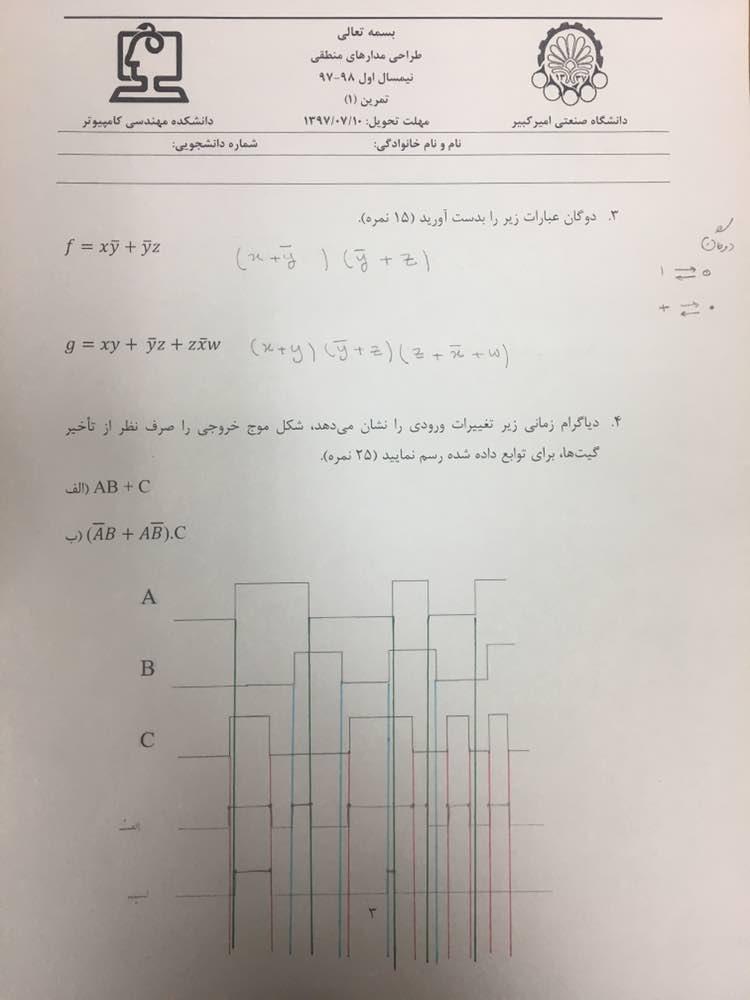 بسمه تعالی
طراحی مدارهای منطقی
نیمسال اول ۹۸-۹۷
تمرین (۱)
دانشگاه صنعتی امیرکبیر
مهلت تحویل: ۱۳۹۷/۰۷/۱۰
دانشکده مهندسی کامپیوتر
نام و نام خانوادگی: شماره دانشجویی:
۳. دوگان عبارات زیر را بدست آورید (۱۵ نمره).
دوگان
f = xȳ + ȳz (x + ȳ) (ȳ + z)
1 ⇌ 0
+ ⇌ •
g = xy + ȳz + zx̄w (x+y) (ȳ+z) (z + x̄ + w)
۴. دیاگرام زمانی زیر تغییرات ورودی را نشان می‌دهد، شکل موج خروجی را صرف نظر از تأخیر
گیت‌ها، برای توابع داده شده رسم نمایید (۲۵ نمره).
الف) AB + C
ب) (A̅B + AB̅).C
A
B
C
الف
ب
۳